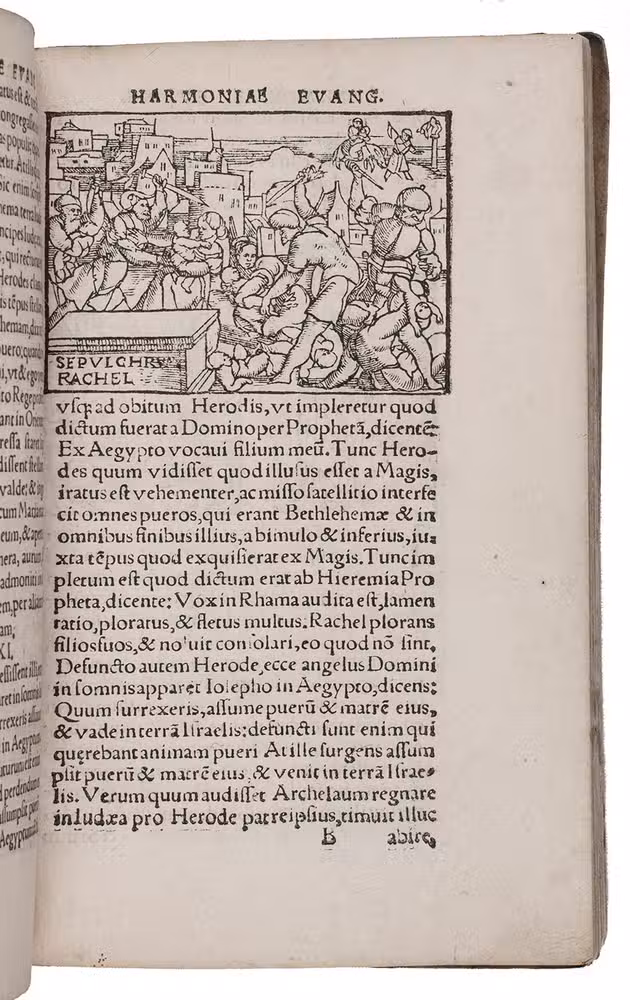 HARMONIAE EVANG.
SEPVLCHRV
RACHEL
vſq; ad obitum Herodis, vt impleretur quod
dictum fuerat a Domino per Prophetā, dicentē:
Ex Aegypto vocaui filium meū. Tunc Hero-
des quum vidiſſet quod illuſus eſſet a Magis,
iratus eſt vehementer, ac miſſo ſatellitio interfe
cit omnes pueros, qui erant Bethlehemæ & in
omnibus finibus illius, a bimulo & inferius, iu-
xta tēpus quod exquiſierat ex Magis. Tunc im
pletum eſt quod dictum erat ab Hieremia Pro
pheta, dicente: Vox in Rhama audita eſt, lamen
tatio, ploratus, & fletus multus. Rachel plorans
filios ſuos, & noluit conſolari, eo quod nō ſint.
Defuncto autem Herode, ecce angelus Domini
in ſomnis apparet Ioſepho in Aegypto, dicens:
Quum ſurrexeris, aſſume puerū & matrē eius,
& vade in terrā Iſraelis: defuncti ſunt enim qui
quęrebant animam pueri At ille ſurgens aſſum
pſit puerū & matrē eius, & venit in terrā Iſrae-
lis. Verum quum audiſſet Archelaum regnare
in Iudæa pro Herode patre ipſius, timuit illuc
B abire,